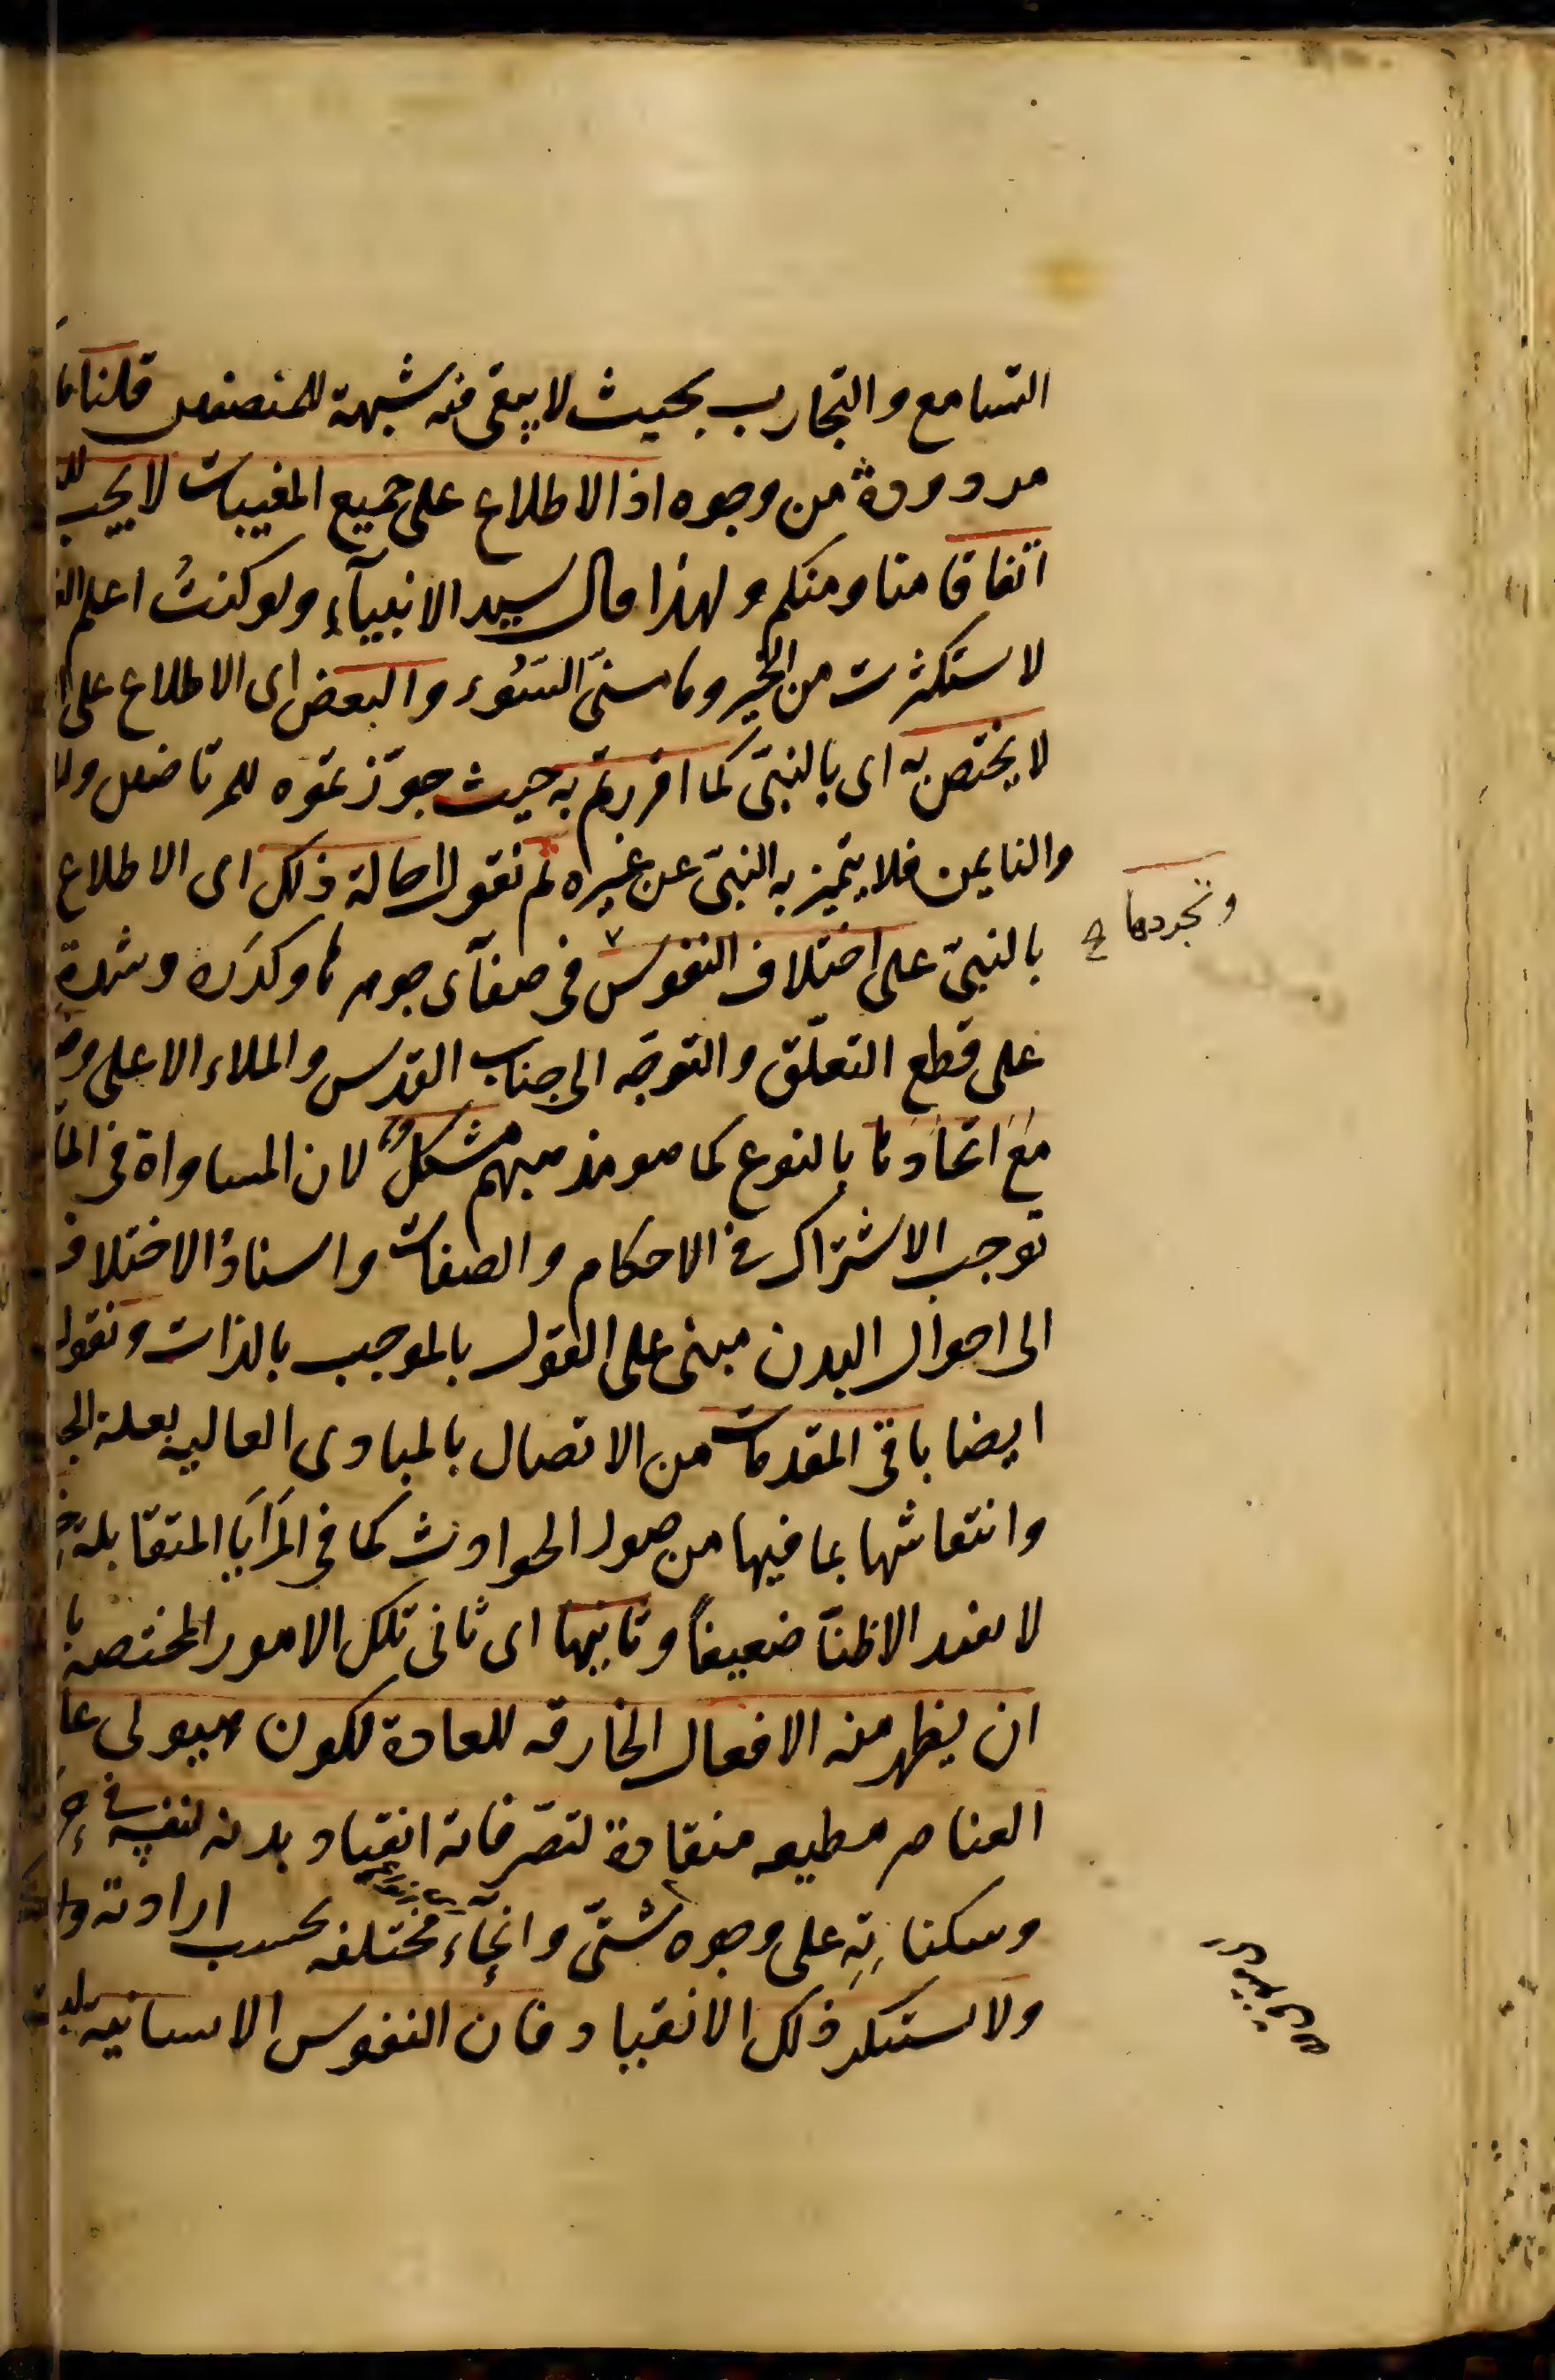 التسامع والتجارب بحيث لا يبقى فيه شبهة للمنصفين قلنا ما
مردودة من وجوه اذ الاطلاع على جميع المغيبات لا يجب
اتفاقا منا ومنكم ولهذا قال سيد الانبيآء ولو كنتُ اعلم
لاستكثرت من الخير وما مسنىّ السّوُء والبعض اى الاطلاع على
لا يختص به اى بالنبىّ كما اقررتم به حيث جوّزتموه للمرتاضين
والنايمين فلا يتميز به النبىّ عن غيره ثم نقول احالة ذلك اى الاطلاع
وتجردها صح
بالنبىّ على اختلاف النفوس فى صفآء جوهرها وكدَره وشدة
على قطع التعلّق والتوجّه الى جناب القدس والملاء الاعلى
مَعَ اتحادها بالنوع كما هو مذهبهم مشكلٌ لان المساواة فى
توجب الاشتراك فى الاحكام والصفات واسنادُ الاختلاف
الى احوال البدن مبنى على القول بالموجب بالذات ونقول
ايضا باقى المقدمات من الاتصال بالمبادى العاليه بعلة
وانتقاشها بما فيها من صور الحوادث كما فى المَرَايَا المتقابلة
لا يفيد الا ظنّا ضعيفاً وثانيها اى ثانى تلك الامور المختصه
ان يظهر منه الافعال الخارقه للعادة لكون هيولى
العناصر مطيعه منقادةً لتصّرفاته انقياد بدنه لنفسه فى
وسكناتِهِ على وجوه شتّى وانحآءَ مختلفه بحسب ارادته
ولا يستنكر ذلك الانقياد فان النفوس الانسانيه